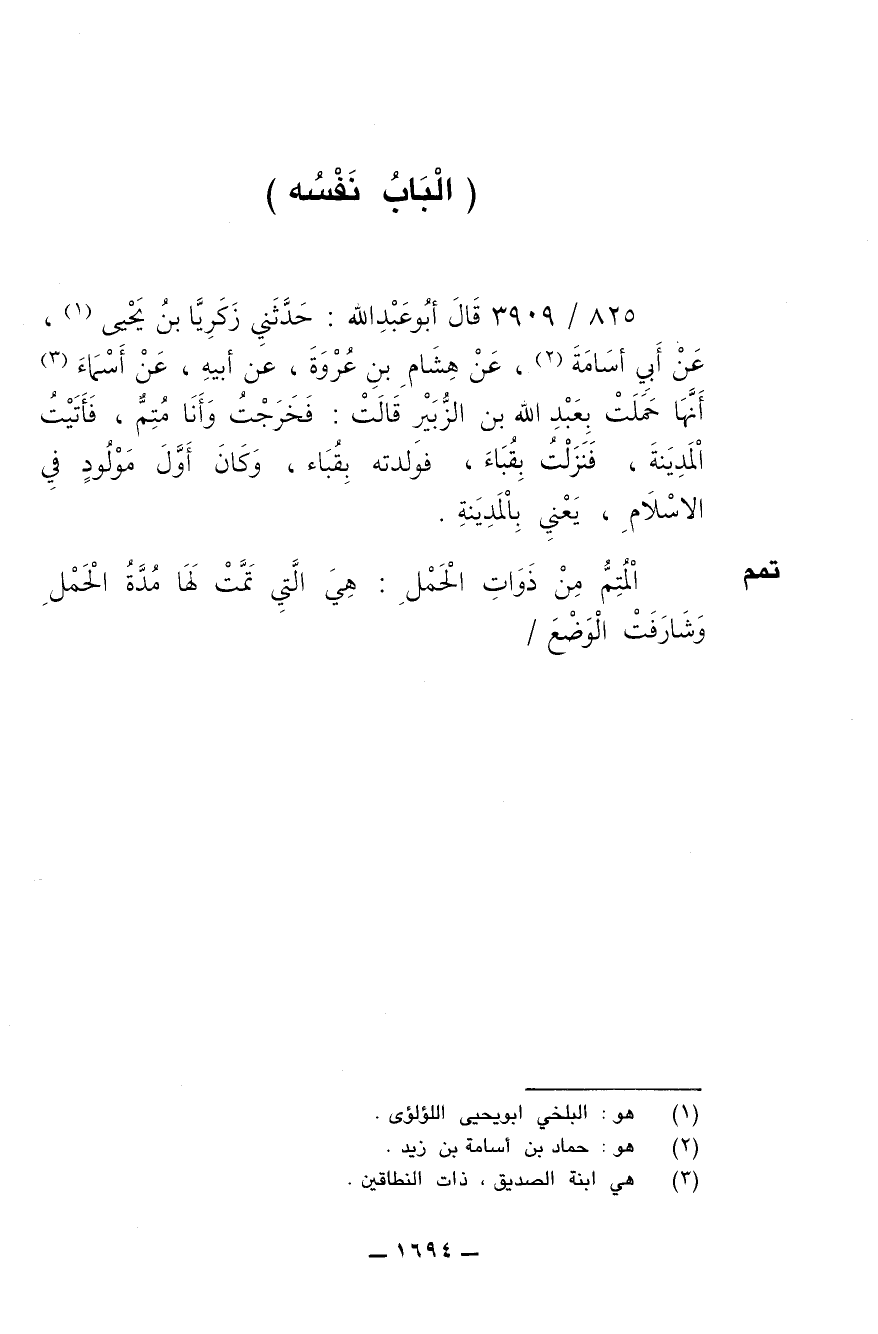 ( الْبَابُ نَفْسُه )
٨٢٥ / ٣٩٠٩ قَالَ أبُوعَبْدِالله : حَدَّثَنِي زَكَرِيَّا بنُ يَحْيى (١) ،
عَنْ أَبِي أسَامَةَ (٢) ، عَنْ هِشَامِ بنِ عُرْوَةَ ، عن أبيهِ ، عَنْ أَسْمَاءَ (٣)
أَنَّهَا حَمَلَتْ بِعَبْدِ الله بن الزُّبَيْر قَالَتْ : فَخَرَجْتُ وَأَنَا مُتِمٌّ ، فَأَتَيْتُ
الْمَدِينَةَ ، فَنَزَلْتُ بِقُبَاءَ ، فولدته بِقُبَاء ، وَكَانَ أَوَّلَ مَوْلُودٍ فِي
الاسْلَامِ ، يَعْنِي بِالْمَدِيَنةِ .
تمم
الْمُتِمُّ مِنْ ذَوَاتِ الْحَمْلِ : هِيَ الَّتِي تَمَّتْ لَهَا مُدَّةُ الْحَمْلِ
وَشَارَفَتْ الْوَضْعَ /
(١) هو : البلخي ابويحيى اللؤلؤى .
(٢) هو : حماد بن أسامة بن زيد .
(٣) هي ابنة الصديق ، ذات النطاقين .
ــ ١٦٩٤ ــ